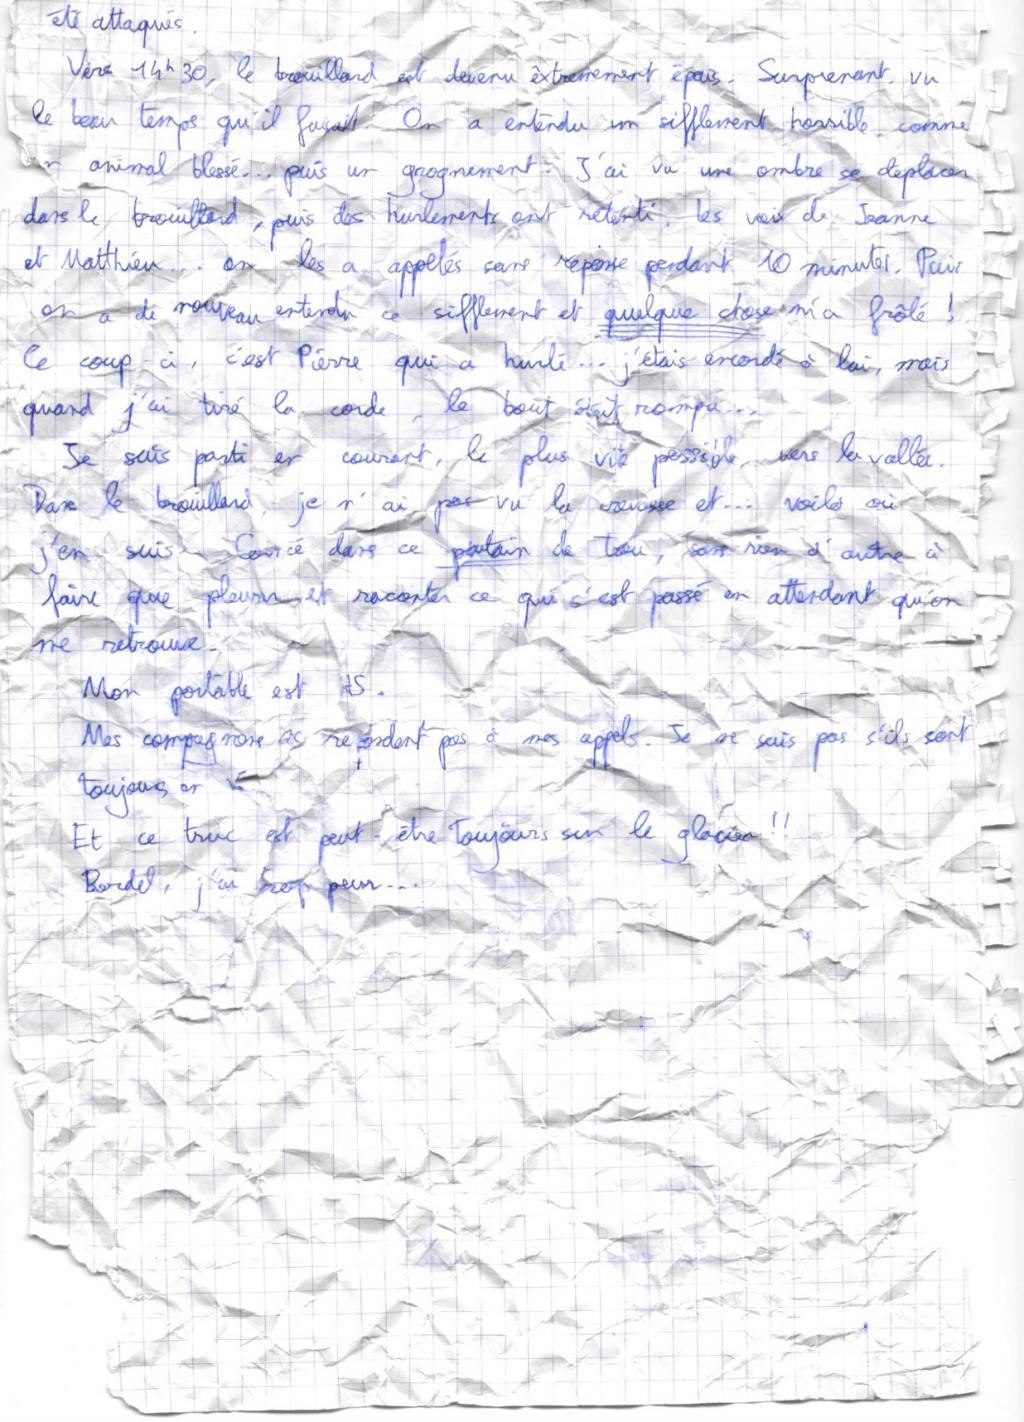 été attaqués.
Vers 14h30, le brouillard est devenu extrêmement épais. Surprenant, vu
le beau temps qu'il faisait. On a entendu un sifflement horrible, comme
un animal blessé... puis un grognement. J'ai vu une ombre se déplacer
dans le brouillard, puis des hurlements ont retenti, les voix de Jeanne
et Matthieu... on les a appelés sans réponse pendant 10 minutes. Puis
on a de nouveau entendu ce sifflement et quelque chose m'a frôlé !
Ce coup-ci, c'est Pierre qui a hurlé... j'étais encordé à lui, mais
quand j'ai tiré la corde, le bout était rompu...
Je suis parti en courant, le plus vite possible, vers la vallée.
Dans le brouillard, je n'ai pas vu la crevasse et... voilà où
j'en suis. Coincé dans ce putain de trou, sans rien d'autre à
faire que pleurer et raconter ce qui s'est passé en attendant qu'on
me retrouve.
Mon portable est HS.
Mes compagnons ne répondent pas à mes appels. Je ne sais pas s'ils sont
toujours en
Et ce truc est peut-être toujours sur le glacier !!
Bordel, j'ai trop peur...